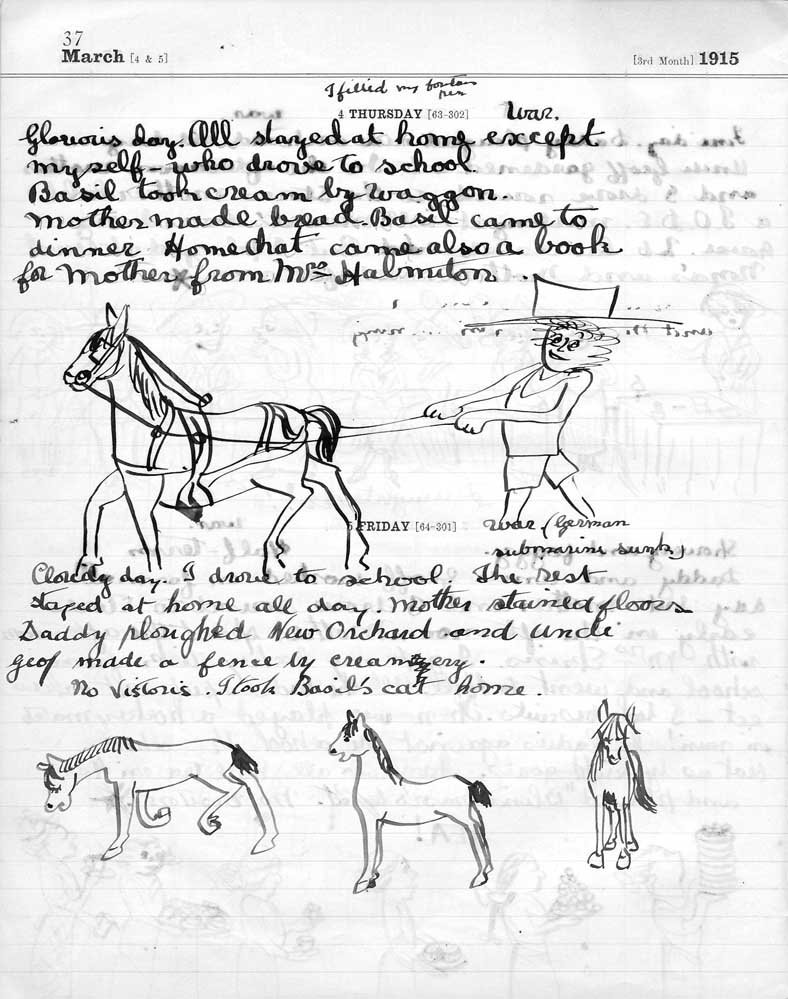 37
March [4 & 5] [3rd Month] 1915
I filled my fountain
pen
4 THURSDAY [63-302] War.
Glorious day. All stayed at home except
myself - who drove to school.
Basil took cream by waggon.
Mother made bread. Basil came to
dinner Homechat came also a book
for Mother from Mrs
5 FRIDAY [64-301] War (German
submarine sunk)
Cloudy day. I drove to school. The rest
stayed at home all day. Mother stained floors
Daddy ploughed New Orchard and Uncle
Geof made a fence by creamery.
No Vistoris. I took Basil's cat home.